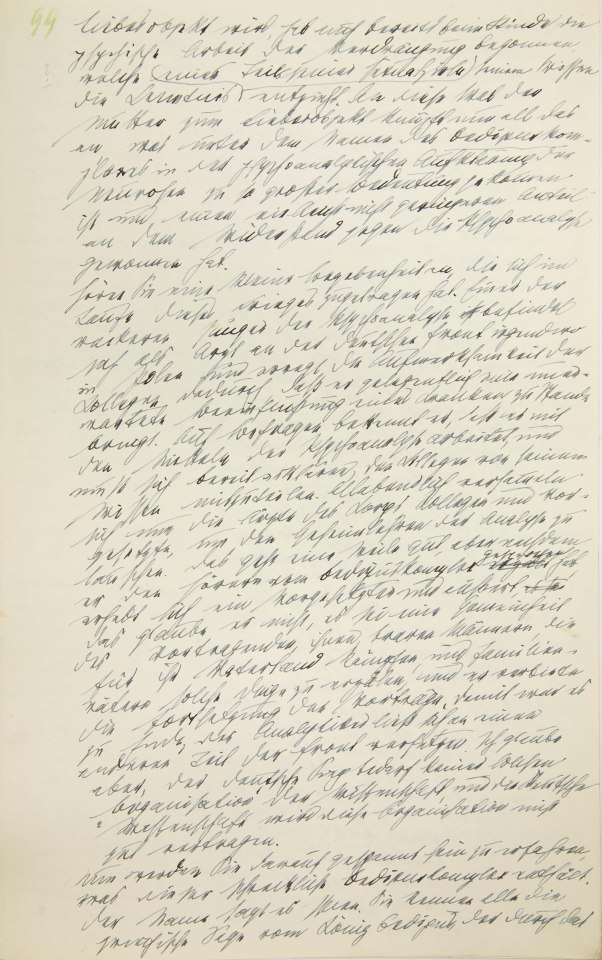 Liebesobjekt wird, hat auch bereits beim Kinde die
psychische Arbeit der Verdrängung begonnen,
welche seinem Wissen
die Kenntnis entzieht. An diese Wahl der
Mutter zum Liebesobjekt knüpft nun all das
an, was unter dem Namen des Oedipuskom-
plexes in der psychoanalytischen Aufklärung der
Neurosen zu so großer Bedeutung gekommen
ist und einen vielleicht nicht geringeren Anteil
an dem Widerstand gegen die Psychoanalyse
gewonnen hat.
Hören Sie eine kleine Begebenheit an, die sich im
Laufe dieses Krieges zugetragen hat. Einer der
wackeren Jünger der Psychoanalyse befindet
sich als Arzt an der deutschen Front irgendwo
in Polen und erregt die Aufmerksamkeit der
Collegen dadurch, daß er gelegentlich eine uner-
wartete Beeinflußung eines Kranken zu Stande
bringt. Auf Befragen bekennt er, daß er mit
den Mitteln der Psychoanalyse arbeitet, und
muß sich bereit erklären, den Collegen von seinem
Wissen mitzuteilen. Allabendlich versammeln
sich nun die Ärzte des Corps, Collegen und Vor-
gesetzte, um den Geheimlehren der Analyse zu
lauschen. Das geht eine Weile gut, aber nachdem
er den Hörern vom Oedipuskomplex gesprochen hat,
erhebt sich ein Vorgesetzter und äußert,
das glaube er nicht, es sei eine Gemeinheit
des Vortragenden, ihnen, braven Männern, die
für ihr Vaterland kämpfen und Familien-
vätern solche Dinge zu erzälen, und er verbiete
die Fortsetzung der Vorträge. Damit war es
zu Ende, der Analytiker ließ sich an einen
anderen Teil der Front versetzen. Ich glaube
aber, der deutsche Sieg bedarf keiner solchen
„Organisation“ der Wissenschaft und die deutsche
Wissenschaft wird diese Organisation nicht
gut vertragen.
Nun werden Sie darauf gespannt sein zu erfahren,
was dieser schreckliche Oedipuskomplex enthält.
Der Name sagt es Ihnen. Sie kennen alle die
griechische Sage vom König Oedipus, der durch das